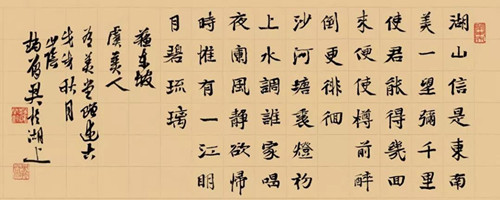 湖山信是東南
美一望彌千里
使君能得幾回
來便使樽前醉
倒更徘徊
沙河塘裏燈初
上水調誰家唱
夜闌風靜欲歸
時惟有一江明
月碧琉璃
蘇東坡
虞美人
有美堂贈述古
秋月